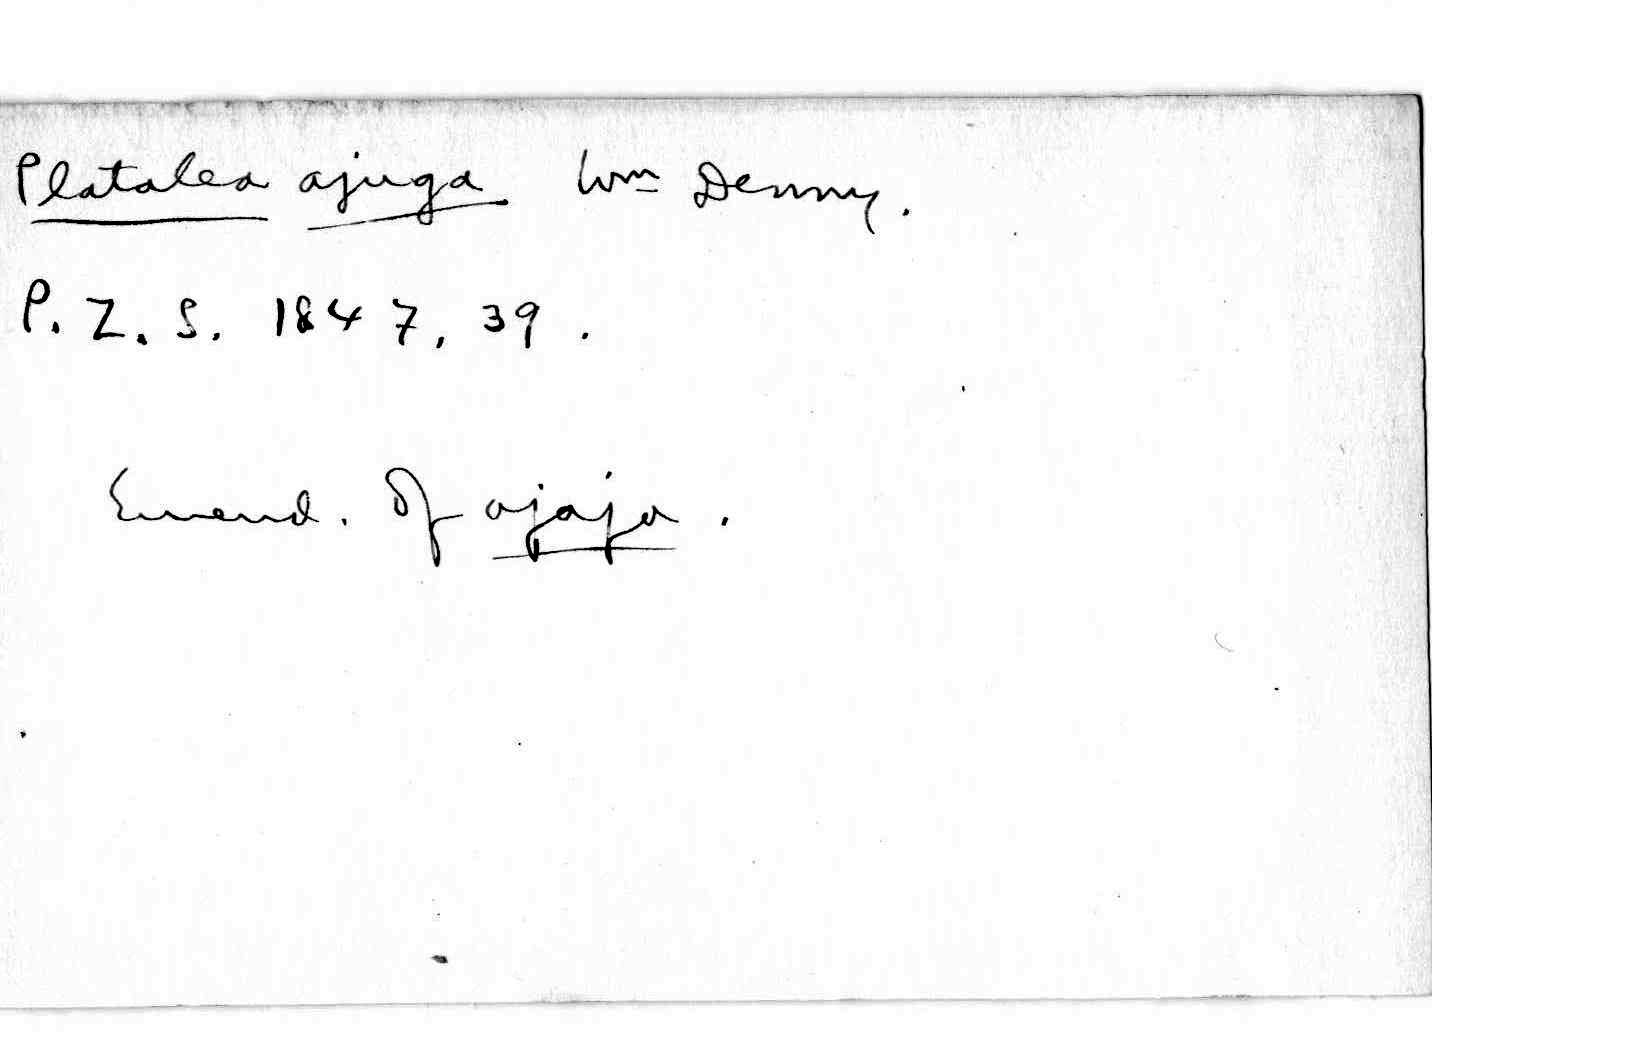 Platalea ajuga Wm Denny.
P. Z. S. 1847, 39.
Emend. Of ajaja.